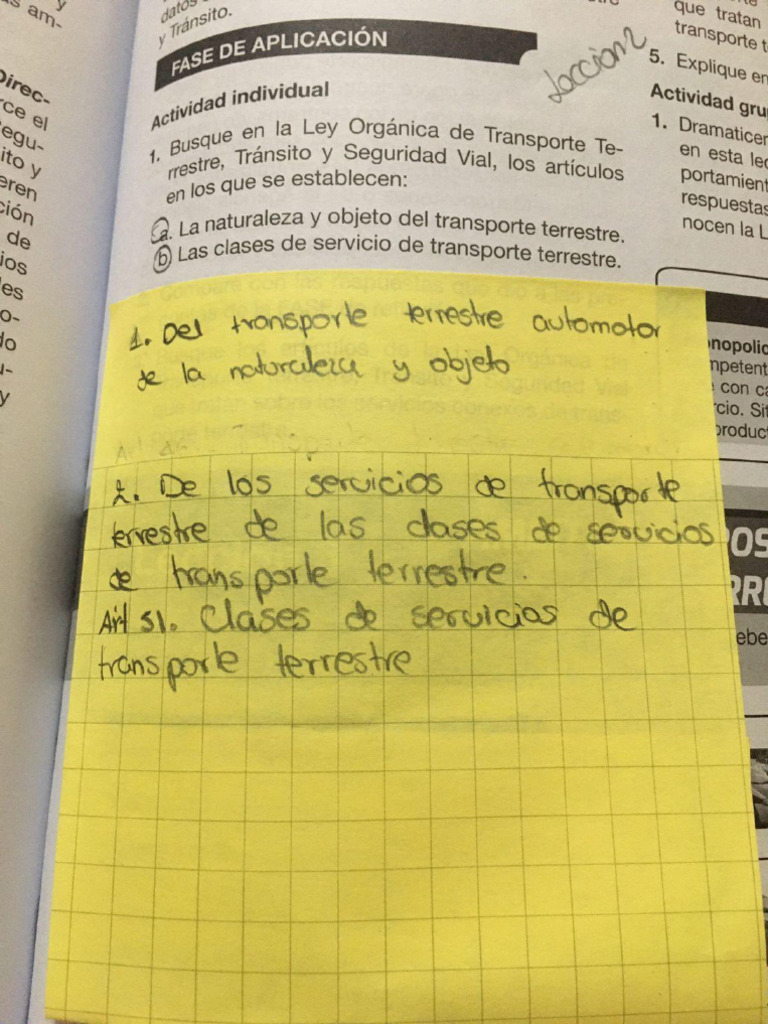 datos
y Tránsito.
FASE DE APLICACIÓN
Leccion 2
Actividad individual
1. Busque en la Ley Orgánica de Transporte Te-
rrestre, Tránsito y Seguridad Vial, los artículos
en los que se establecen:
a. La naturaleza y objeto del transporte terrestre.
b Las clases de servicio de transporte terrestre.
1. Del transporte terrestre automotor
de la naturaleza y objeto
2. De los servicios de transporte
terrestre de las clases de servicios
de transporte terrestre.
Art 51. Clases de servicios de
transporte terrestre
y
am-
Direc-
ce el
egu-
ito y
eren
ción
de
ios
les
o-
do
u-
y
que tratan
transporte t
5. Explique en
Actividad gru
1. Dramaticen
en esta lec
portamient
respuestas
nocen la L
nopolio
mpetent
con ca
rcio. Sit
product
OS
RR
ebe